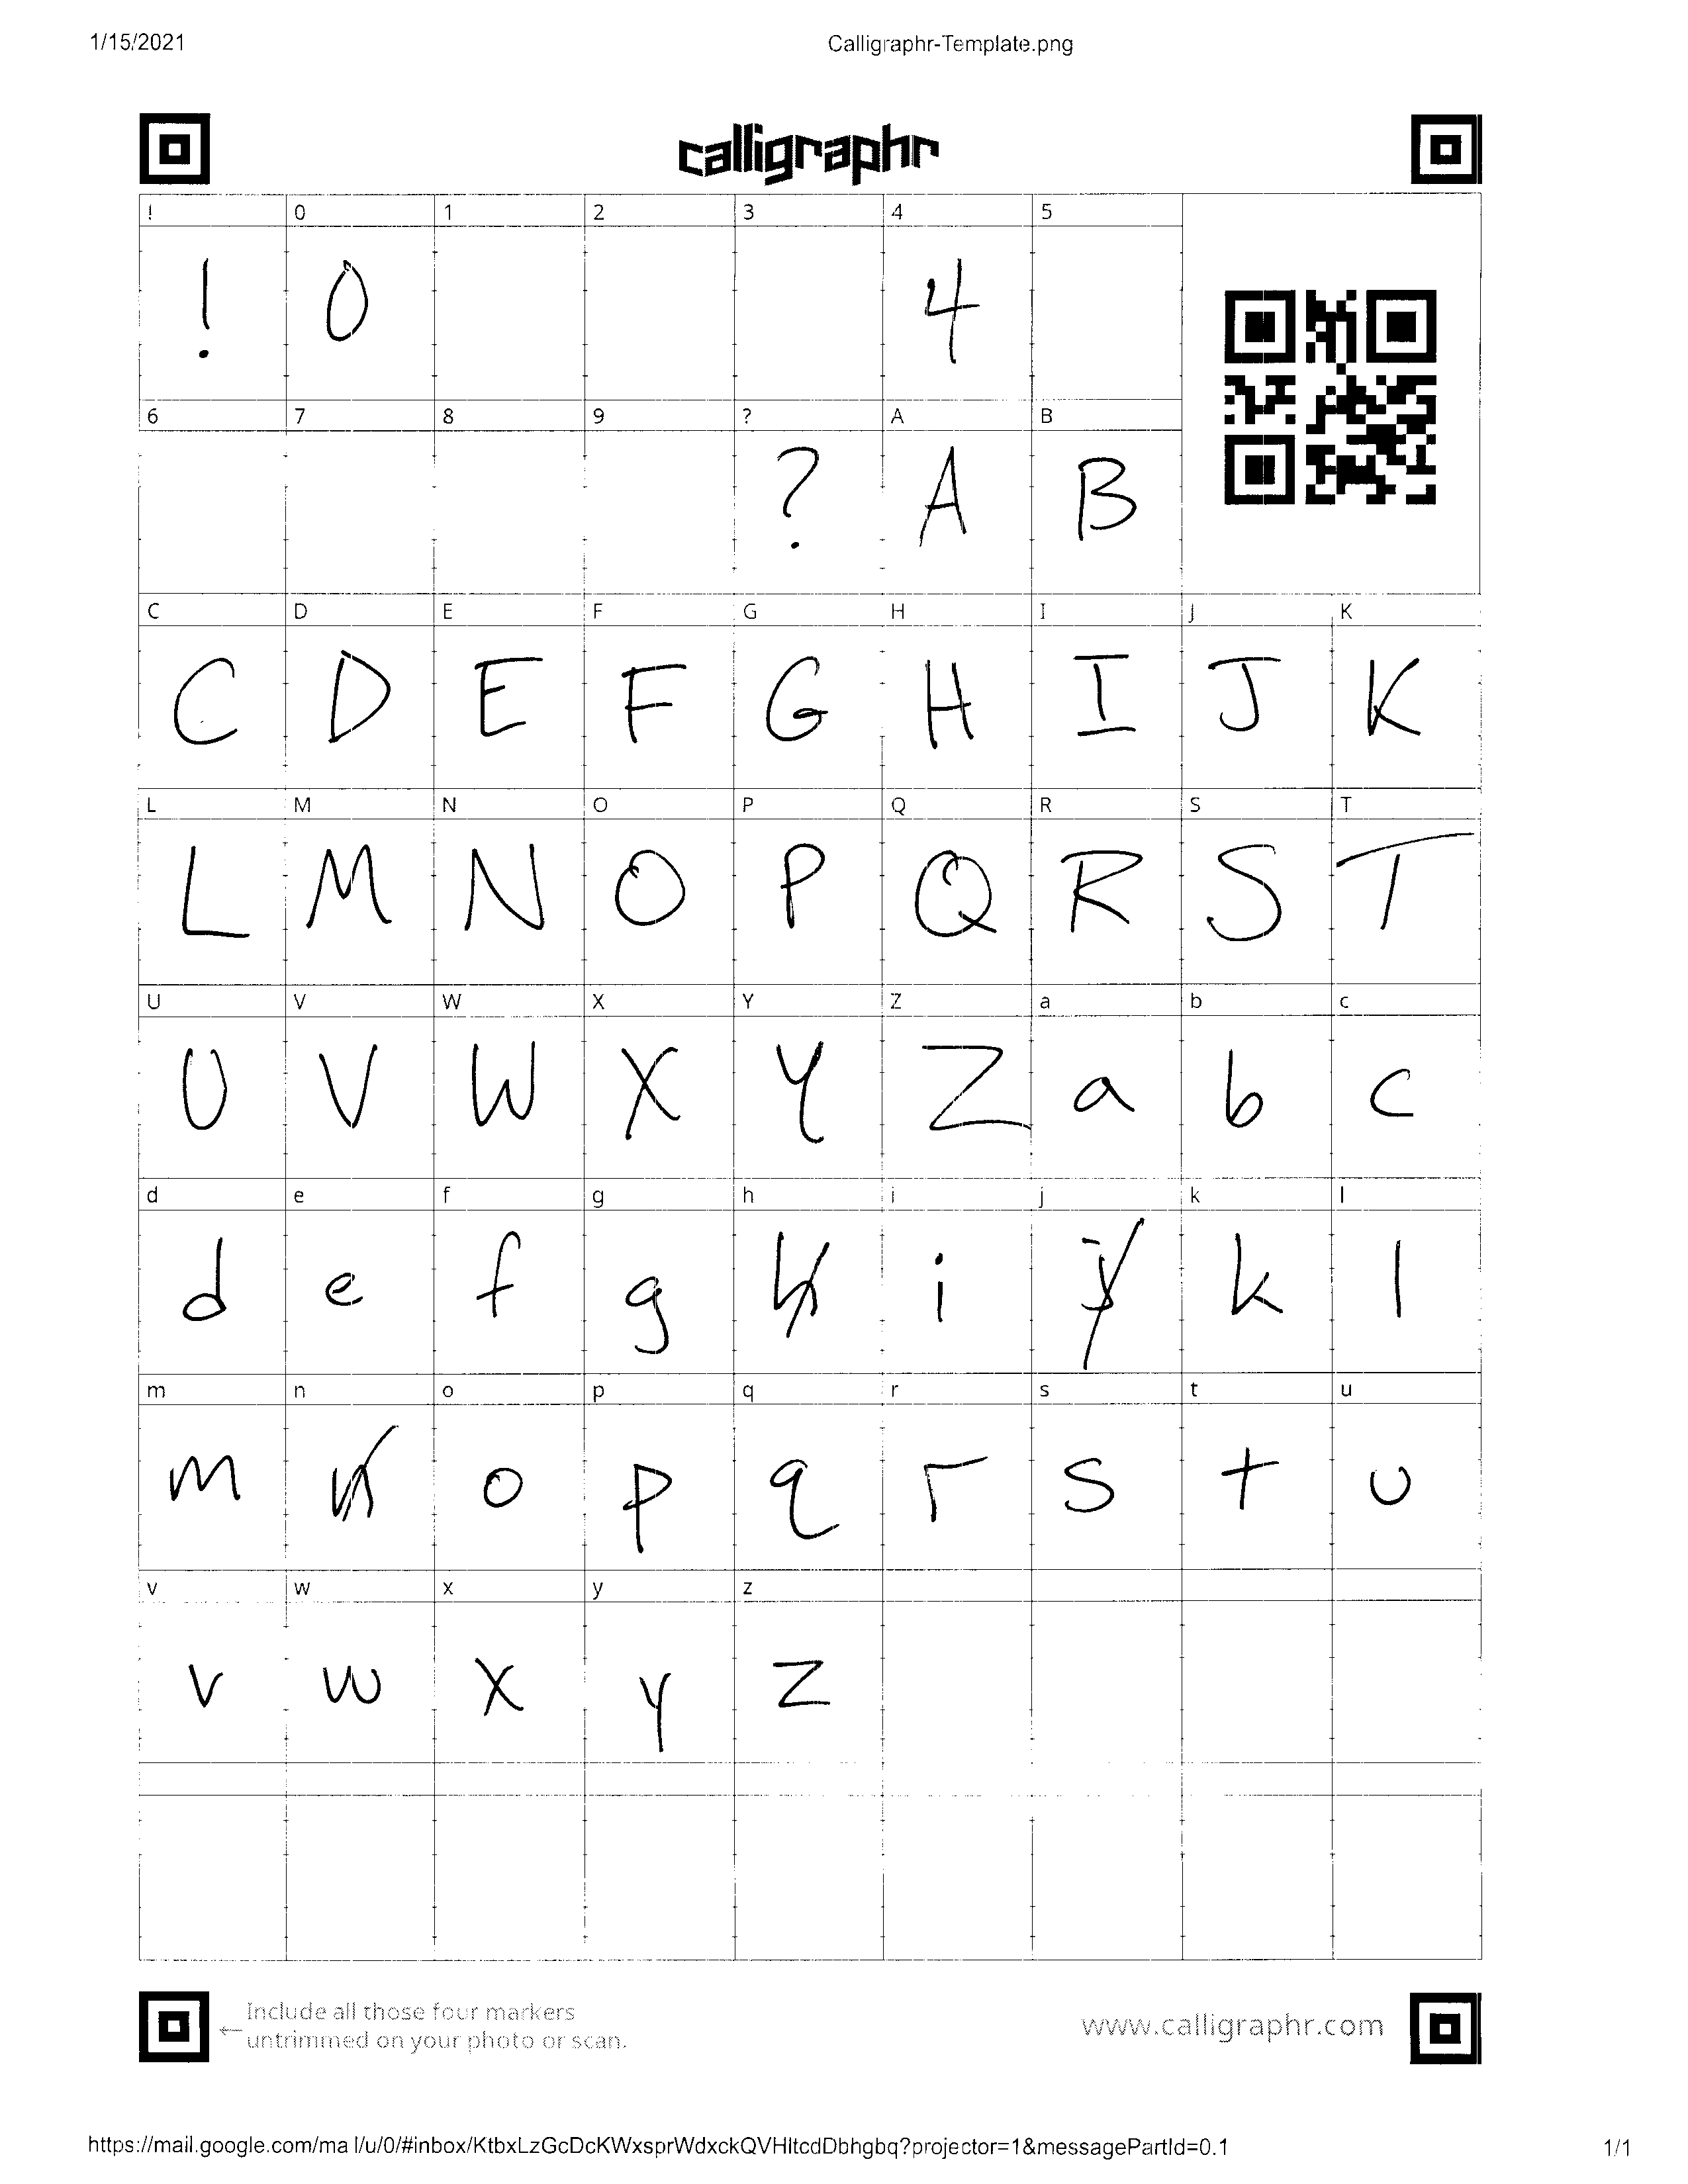 1/15/2021 Calligraphr-Template.png
calligraphr
! 0 1 2 3 4 5
! 0 4
6 7 8 9 ? A B
? A B
C D E F G H I J K
C D E F G H I J K
L M N O P Q R S T
L M N O P Q R S T
U V W X Y Z a b c
U V W X Y Z a b c
d e f g h i j k l
d e f g h i j k l
m n o p q r s t u
m n o p q r s t u
v w x y z
v w x y z
← Include all those four markers
untrimmed on your photo or scan.
www.calligraphr.com
https://mail.google.com/ma l/u/0/#inbox/KtbxLzGcDcKWxsprWdxckQVHltcdDbhgbq?projector=1&messagePartId=0.1 1/1